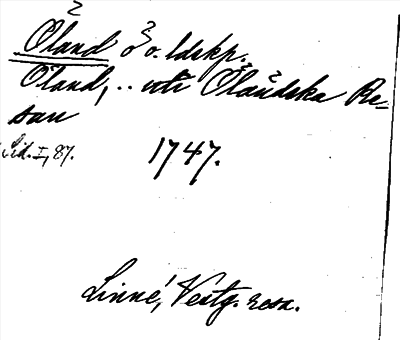 Öland ö o. ldskp.
Öland, .. uti Öländska Re-
san
Lid. I, 87. 1747.
Linné, Vestg. resa.